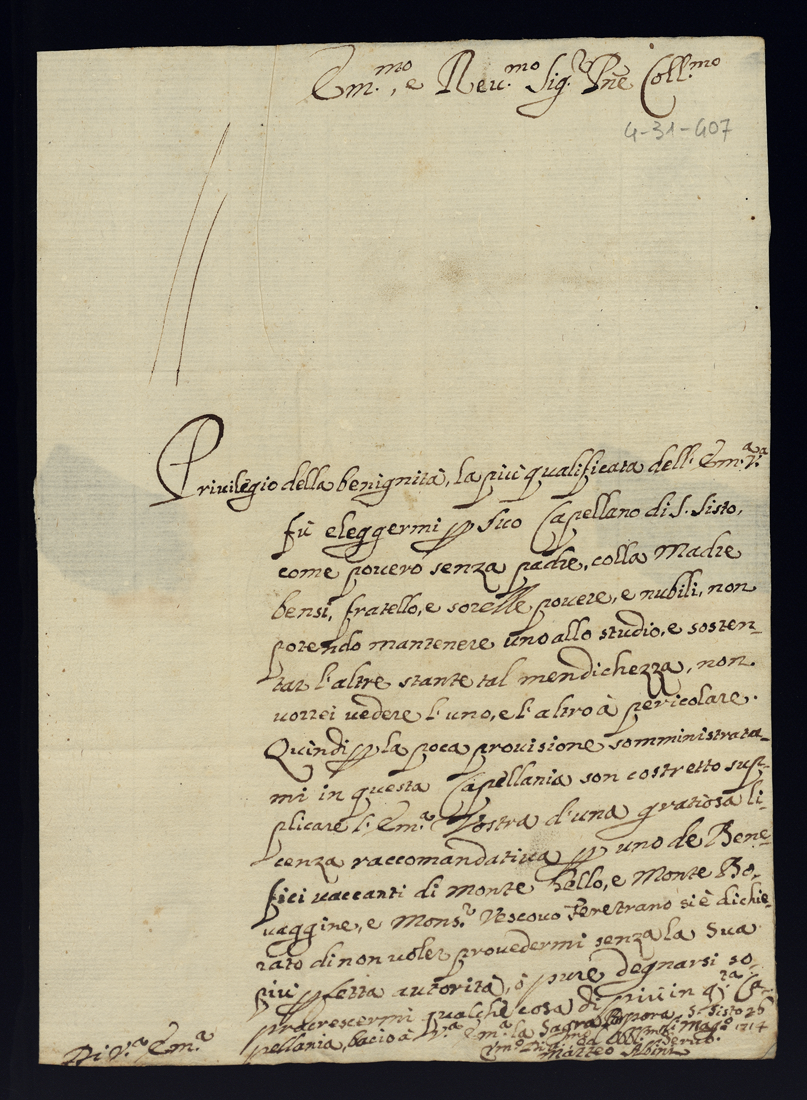 Em.mo, e Reu.mo Sig.r Pñe Coll.mo
4-31-407
Priuilegio della benignità, la più qualificata dell'Em.a V.a
fù eleggermi p Suo Capellano di S. Sisto,
come pouero senza padre, colla Madre
bensi, fratello, e sorelle pouere, e nubili, non
potendo mantenere uno allo studio, e susten-
tar l'altre stante tal mendichezza, non
uorrei uedere l'uno, e l'altro à pericolare.
Quindi p la poca prouisione somministrata-
mi in questa Capellania son costretto sup-
plicare l'Em.a Vostra d'una gratiosa li-
cenza raccomandatiua p uno de Bene-
fici uaccanti di Monte Bello, e Monte Bo-
uaggine, e Mons.r Vescouo Feretrano si è dichie-
rato di non uoler prouedermi senza la Sua
più pfetta autorità, ò pure degnarsi so-
praccrescermi qualche cosa di più in q.ta Ca-
pellania, bacio à V.a Em.a la Sagra Porpora. S. Sisto 26
Maggo 1714
Di V.a Em.a
Vmo
Matteo Albini